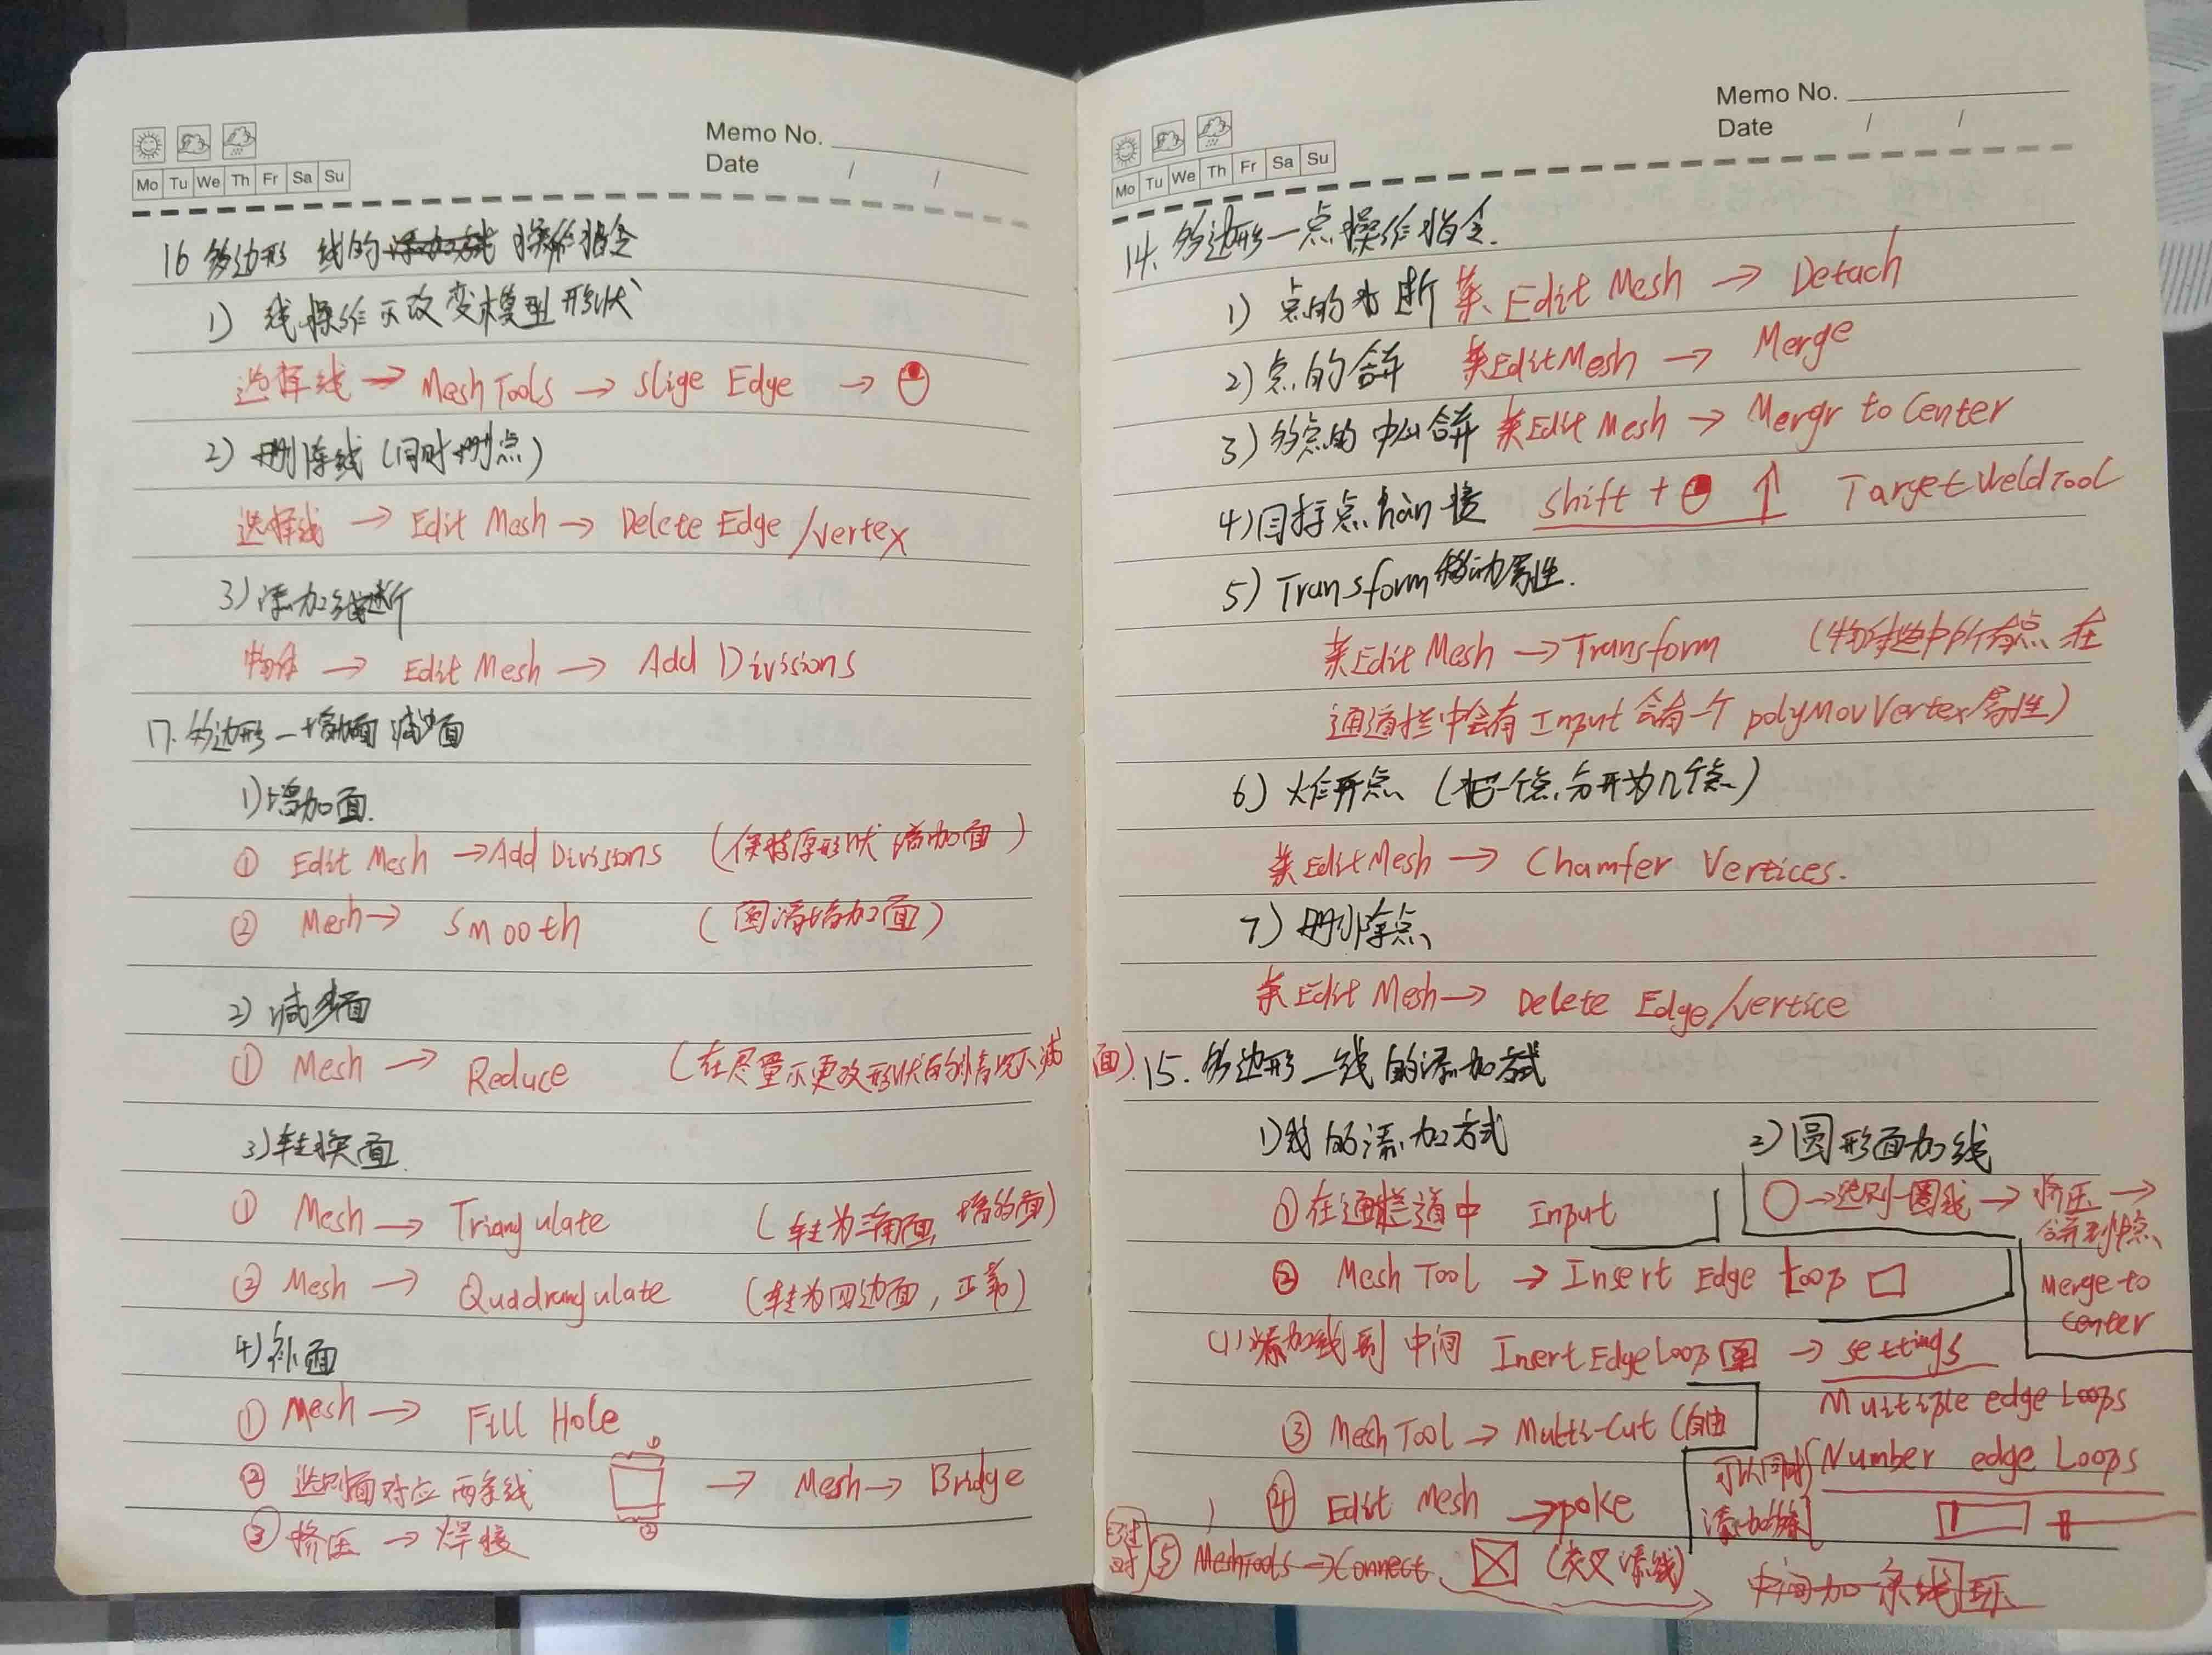 Memo No.
Date / /
Mo Tu We Th Fr Sa Su
16 多边形 线的 操作指令
1) 线操作不改变模型形状
选择线 → Mesh Tools → Slige Edge →
2) 删除线(同时删点)
选择线 → Edit Mesh → Delete Edge/vertex
3) 添加线断
物体 → Edit Mesh → Add Divisions
17. 多边形一增加面 减少面
1) 增加面.
① Edit Mesh → Add Divisions (保持原形状 增加面)
② Mesh → Smooth (圆滑增加面)
2) 减多面
① Mesh → Reduce (在尽量不更改形状的情况下减面).
3) 转换面.
① Mesh → Triangulate (转为三角面, 增的面)
② Mesh → Quadrangulate (转为四边面,正常)
4) 补面
① Mesh → Fill Hole
② 选则面对应两条线 ① ② → Mesh → Bridge
③ 挤压 → 焊接
Memo No.
Date / /
Mo Tu We Th Fr Sa Su
14. 多边形一点操作指令.
1) 点的 断 菜 Edit Mesh → Detach
2) 点的合并 菜 Edit Mesh → Merge
3) 多点的中心合并 菜 Edit Mesh → Mergr to Center
4) 目标点 han 接 shift + ↑ Target Weld Tool
5) Transform 移动属性.
菜 Edit Mesh → Transform (物体 中所有点 在
通道栏中会有 Input 会有一个 polyMovVertex 属性)
6) 炸开点 (把一个点分开为几个点)
菜 Edit Mesh → Chamfer Vertices.
7) 删除点
菜 Edit Mesh → Delete Edge/vertice
15. 多边形一线的添加方式
1) 线的添加方式
① 在通栏道中 Input
② Mesh Tool → Insert Edge Loop □
(1) 添加线到中间 Insert Edge Loop → settings
Multiple edge Loops
Number edge Loops
③ Mesh Tool → Multi-Cut (自由
可以同时
添加
④ Edit Mesh → poke
⑤ MeshTools → Connect (交叉添线)
中间加一条线 环
2) 圆形面加线
○ → 选则一圈线 → 挤压 →
合并到中点
Merge to
Center